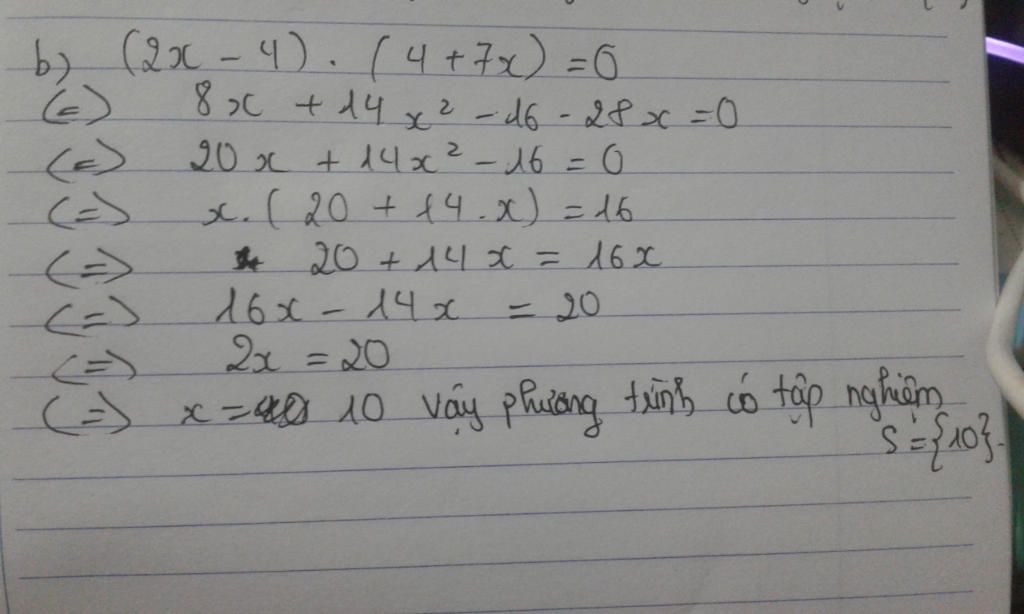 b) (2x - 4) . (4 + 7x) = 0
(=) 8x + 14x² - 16 - 28x = 0
(=) 20x + 14x² - 16 = 0
(=) x. (20 + 14.x) = 16
(=) 20 + 14x = 16x
(=) 16x - 14x = 20
(=) 2x = 20
(=) x = 10 vậy phương trình có tập nghiệm
S = {10}.